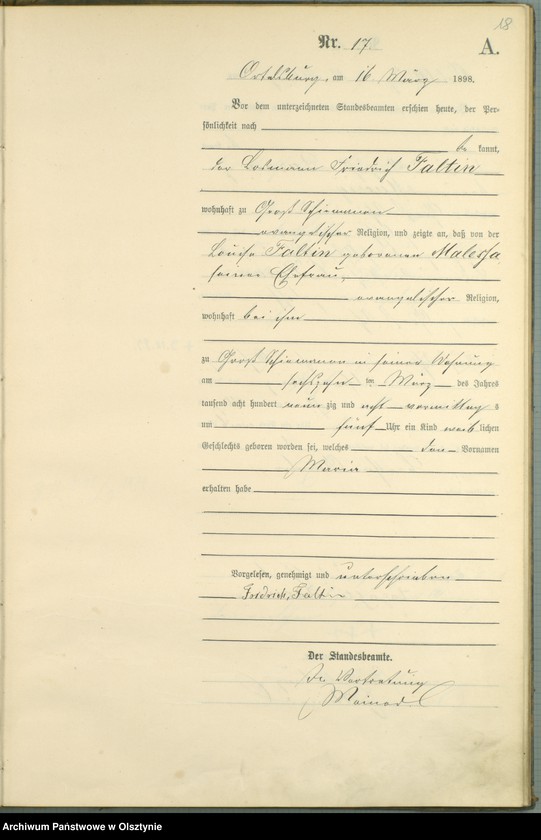 18
Nr. 17.
A.
Ortelsburg, am 16 März 1898.
Vor dem unterzeichneten Standesbeamten erschien heute, der Per-
sönlichkeit nach
be kannt,
der Losmann Friedrich Faltin
wohnhaft zu Groß Schiemanen
evangelischer Religion, und zeigte an, daß von der
Louise Faltin geborenen Malessa
seiner Ehefrau,
evangelischer Religion,
wohnhaft bei ihm
zu Groß Schiemanen in seiner Wohnung
am sechszehn ten März des Jahres
tausend acht hundert neun zig und acht vormittag s
um fünf Uhr ein Kind weib lichen
Geschlechts geboren worden sei, welches den Vornamen
Marie
erhalten habe
Vorgelesen, genehmigt und unterschrieben
Fridrich, Faltin
Der Standesbeamte.
In Vertretung
Archiwum Państwowe w Olsztynie